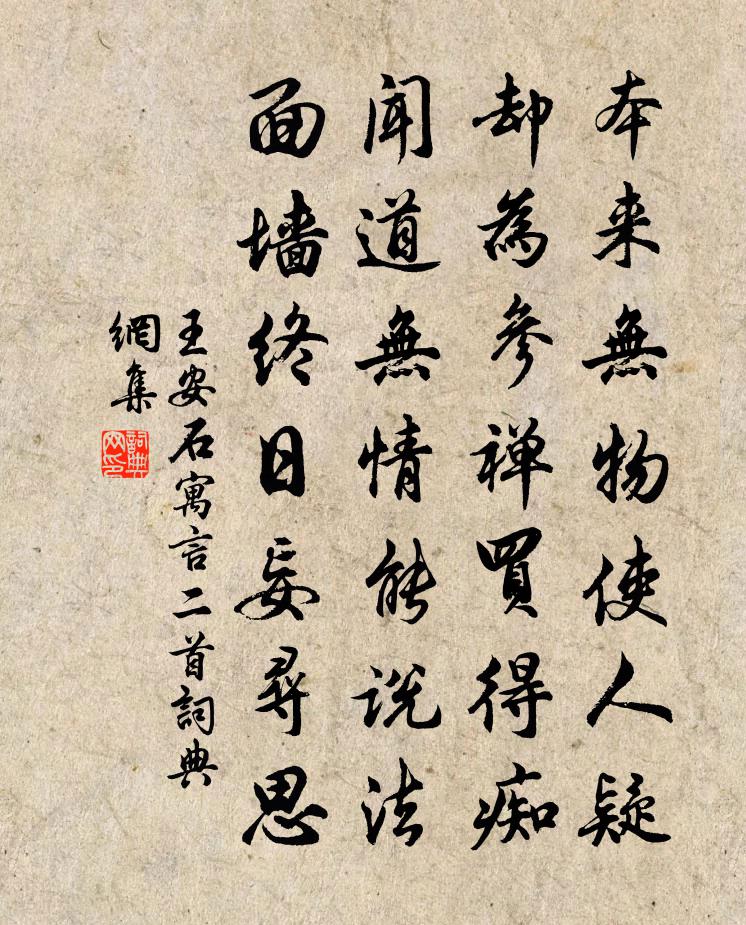 本来無物使人疑
却為參禅買得痴
闻道無情能説法
面墙終日妄尋思
王安石寓言二首詞典
網集
詞典
网印